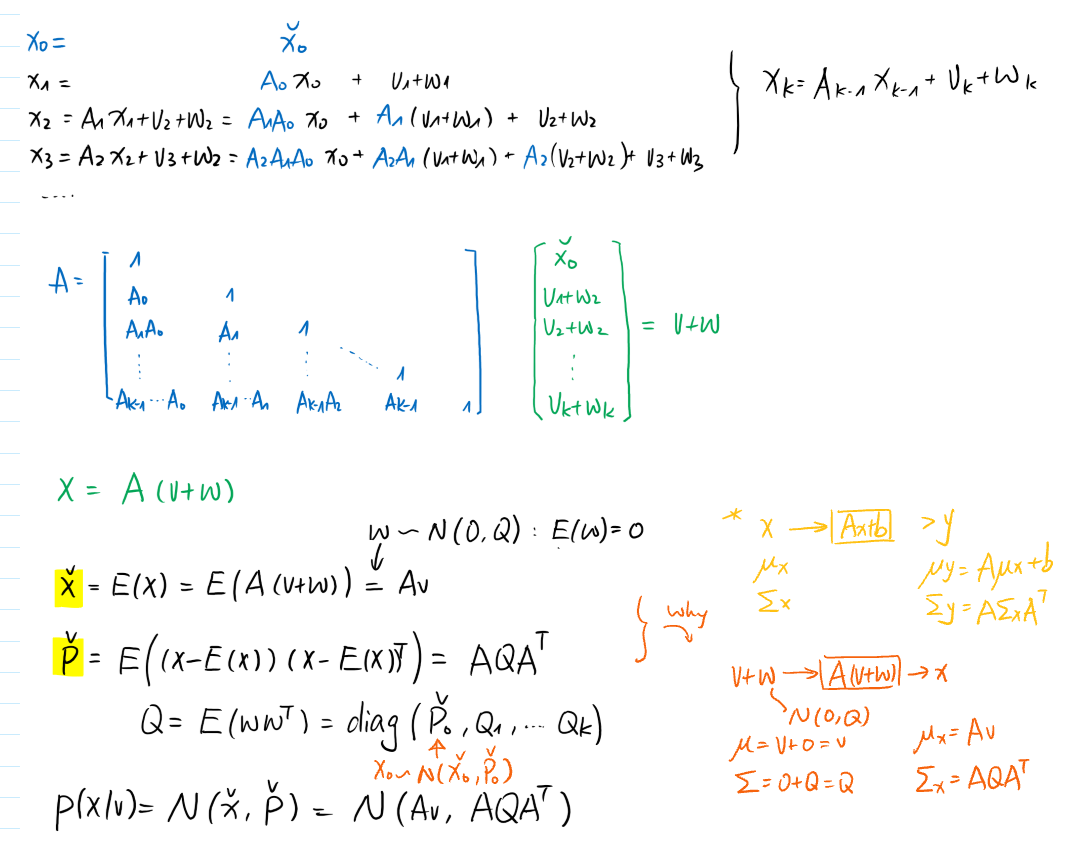 x₀ = x̌₀
x₁ = A₀ x₀ + v₁+w₁
x₂ = A₁x₁+v₂+w₂ = A₁A₀ x₀ + A₁(v₁+w₁) + v₂+w₂
x₃ = A₂x₂+v₃+w₂ = A₂A₁A₀ x₀ + A₂A₁(v₁+w₁) + A₂(v₂+w₂)+ v₃+w₃
....
} x_k = A_{k-1} x_{k-1} + v_k + w_k
A = [
1
A₀ 1
A₁A₀ A₁ 1
⋮ ⋮ ⋮ ⋱ 1
A_{k-1}···A₀ A_{k-1}··A₁ A_{k-1}A₂ A_{k-1} 1 ]
[ x̌₀
v₁+w₂
v₂+w₂ = v+w
⋮
v_k+w_k ]
x = A (v+w)
w ~ N(0, Q) : E(w)=0
↓
x̌ = E(x) = E(A(v+w)) = Av
P̌ = E((x-E(x))(x-E(x)ᵀ) = AQAᵀ
Q = E(wwᵀ) = diag(P̌₀, Q₁, ... Q_k)
↑
x₀~N(x̌₀, P̌₀)
p(x|v) = N(x̌, P̌) = N(Av, AQAᵀ)
} why
* x → Ax+b > y
μx μy = Aμx+b
Σx Σy = AΣxAᵀ
v+w → A(v+w) → x
N(0,Q)
μ = v+0 = v μx = Av
Σ = 0+Q = Q Σx = AQAᵀ